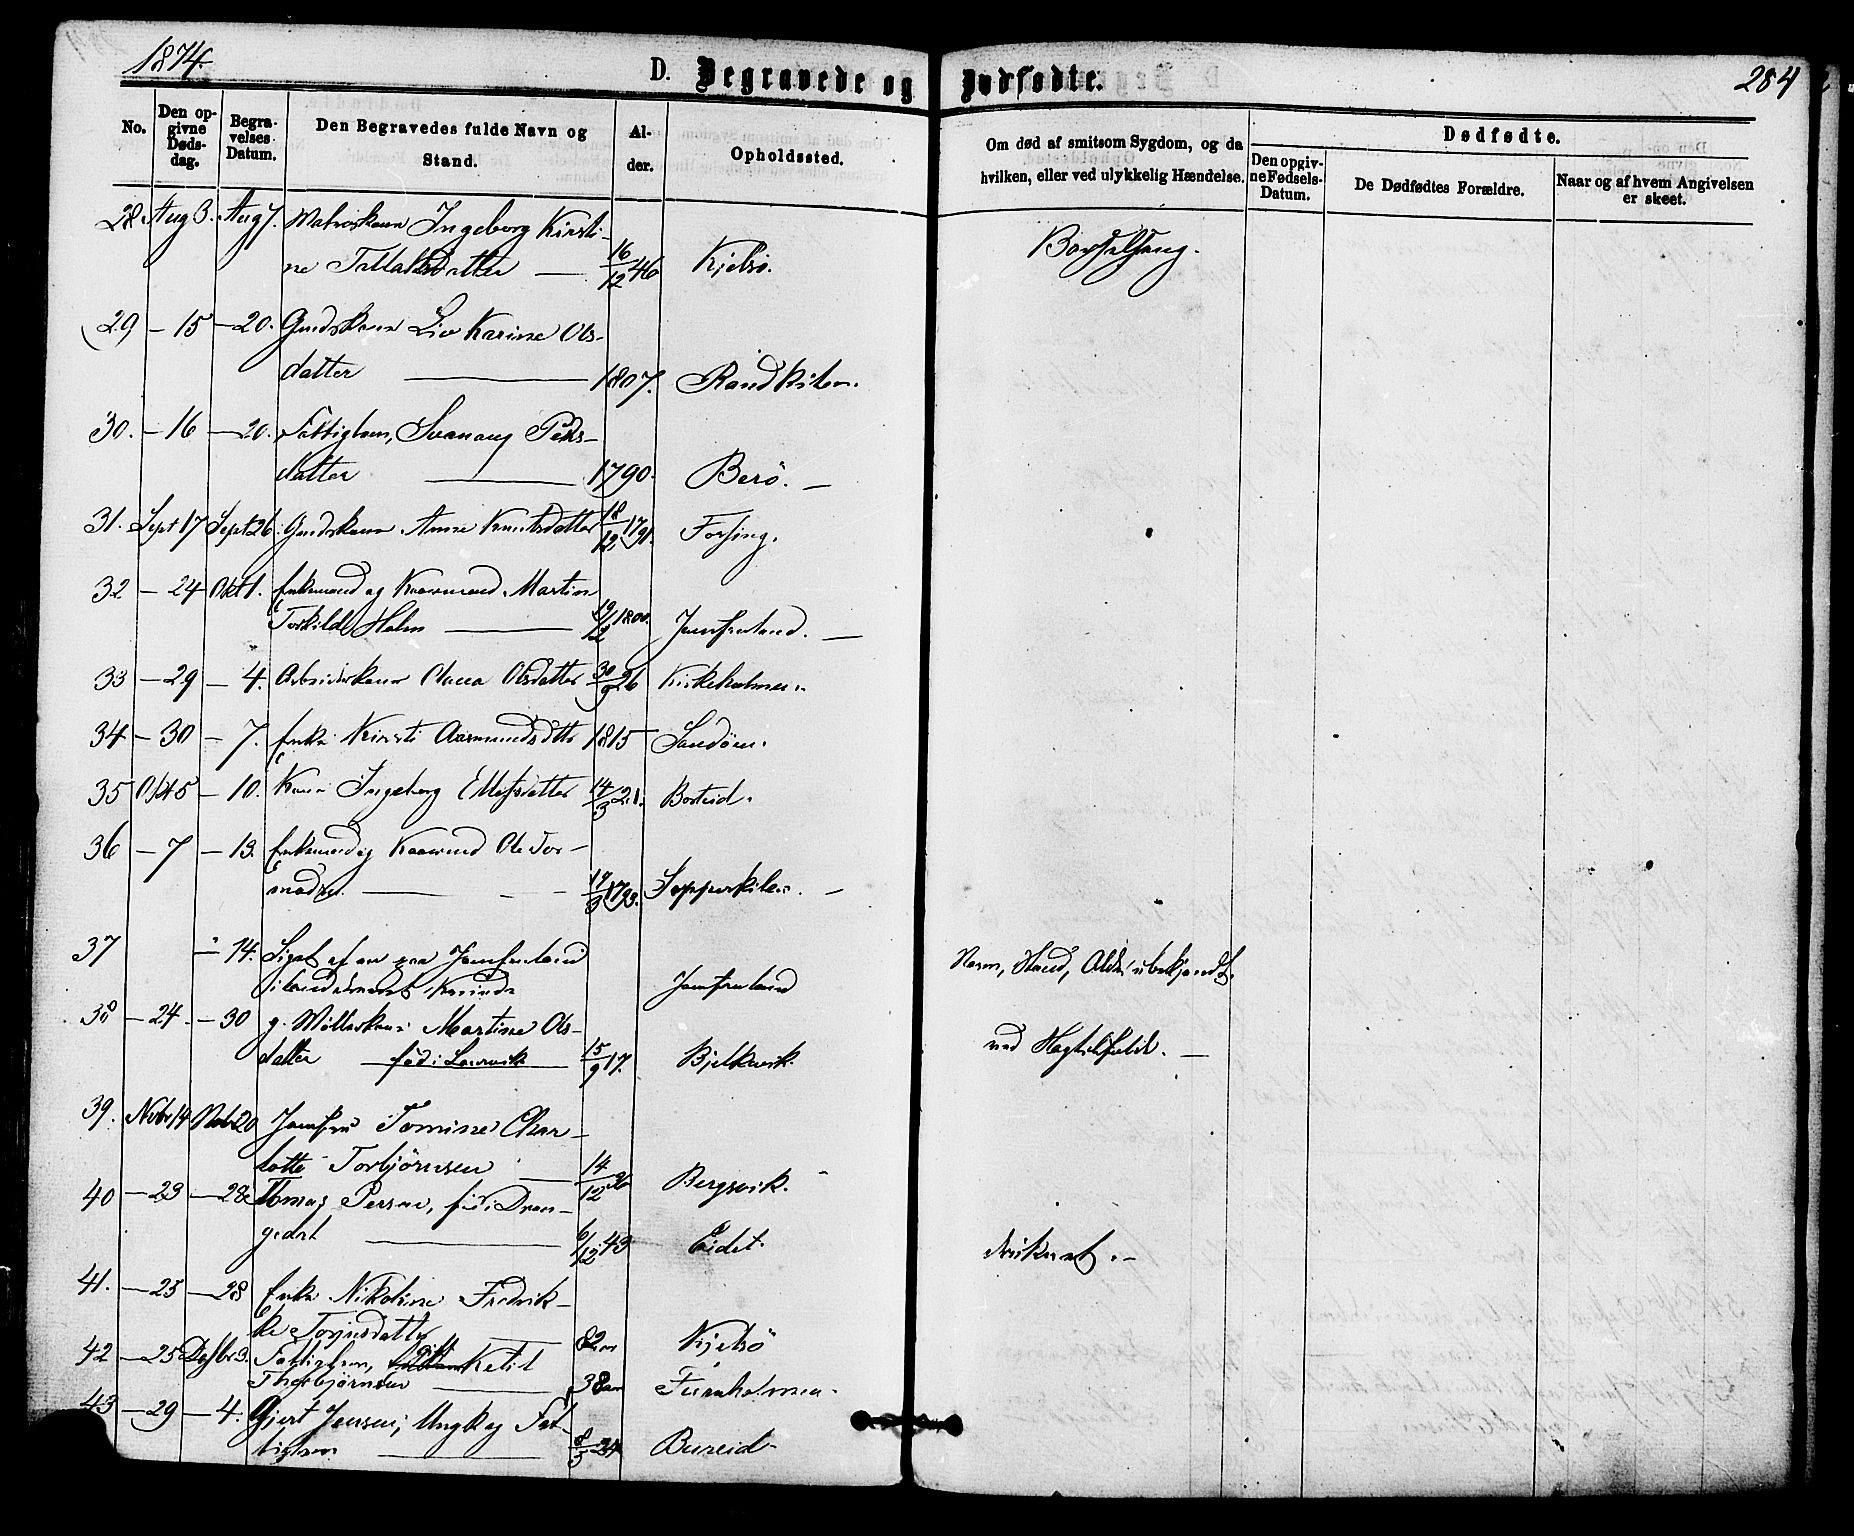 1874.
D. Begravede og Dødfødte.
284
No.
Den opgivne Dødsdag.
Begravelses Datum.
Den Begravedes fulde Navn og Stand.
Alder.
Opholdssted.
Om død af smitsom Sygdom, og da hvilken, eller ved ulykkelig Hændelse.
Dødfødte.
Den opgivne Fødsels-Datum.
De Dødfødtes Forældre.
Naar og af hvem Angivelsen er skeet.
28. Aug 3. Aug 7. Matroskone Ingeborg Kirsti-
ne Tallaksdatter — 16/12 46 Kjelsø. Barselseng.
29 — 15 — 20. Gmdskone Liv Karine Ols-
datter — 1807. Randkilen.
30. — 16 — 20. Fattiglem, Svanaug Peders-
datter — 1790. Berø. —
31. Sept 17 Sept 26. Gmdskone Anne Knutsdatter 18/12 1791. Forsing.
32 — 24 Okt 1. Enkemand og Kaarmand Martin
Torkilds Holm — 19/12 1800. Jomfruland. —
33 — 29 — 4. Arbeiderkone Olava Olsdatter 30/9 26 Kirkeholmen.
34 — 30 — 7. Enke Kirsti Aasmundsdtr 1815 Sandøen.
35 Okt 5 — 10. Kone Ingeborg Ellefsdatter 14/3 21. Borteid.
36 — 7 — 13. Enkemand og Kaarmand Ole Tor-
— 19/3 1793. Sopperkilen. —
37 — 14. Liget af en paa Jomfruland
ilanddrevet Kvinde Jomfruland Navn, Stand, Alder ubekjendt.
38 — 24 — 30 g. Møllerkone Martine Ols-
datter — fød i Laurvik 15/9 17. Bjelkevik. —
39. Novbr 14 Nvbr 20 Jomfru Tomine Char-
lotte Torbjørnsen — 14/12 36 Bergsvik.
40 — 23 — 28 Tomas Persen, fød i Dran-
gedal — 6/12 43 Eidet. druknet. —
41. — 25 — 28 Enke Nikoline Fredrik-
ke Torjusdatter — 82 Kjelsø
42 — 25 Decbr 3. Fattiglem, gift Ketil
Thorbjørnsen — 38 Furuholmen.
43 — 29 — 4. Gjert Jensen, Ungk og Fat-
tiglem — 8/5 24 Bureid.